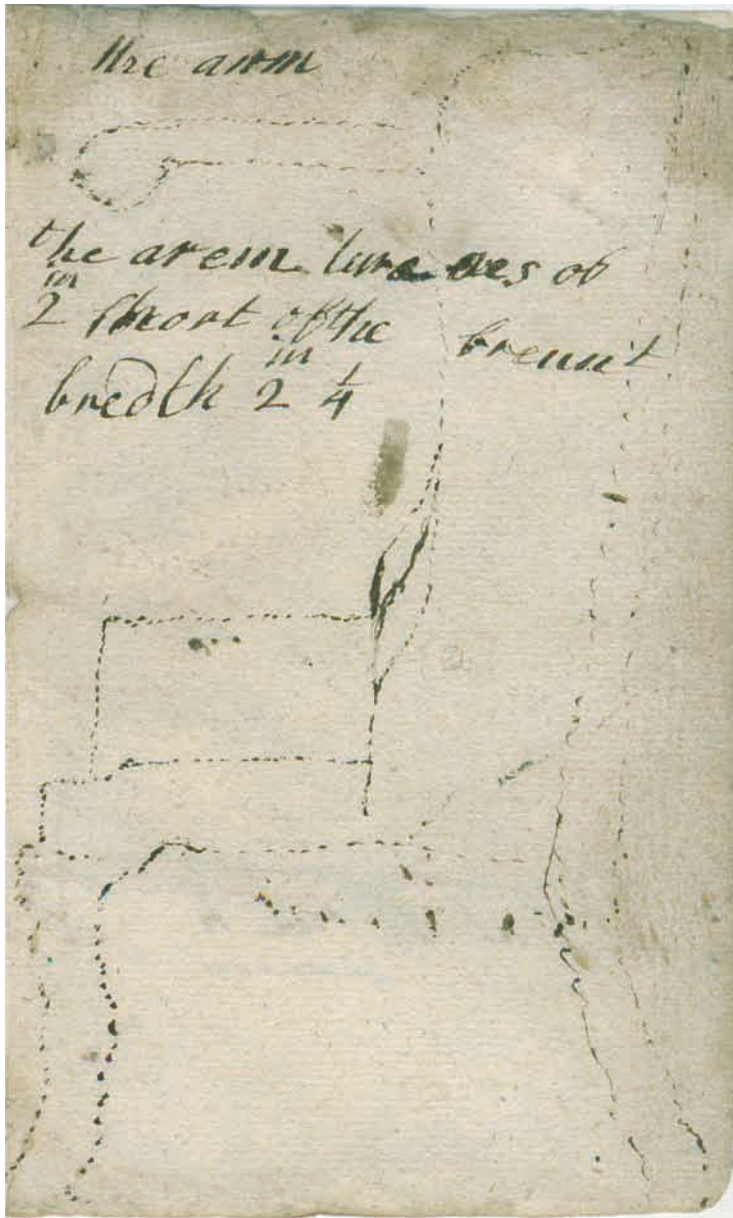 the arm
the arem turn oves of
2 in short of the breunt
bredth 2 in 1/4